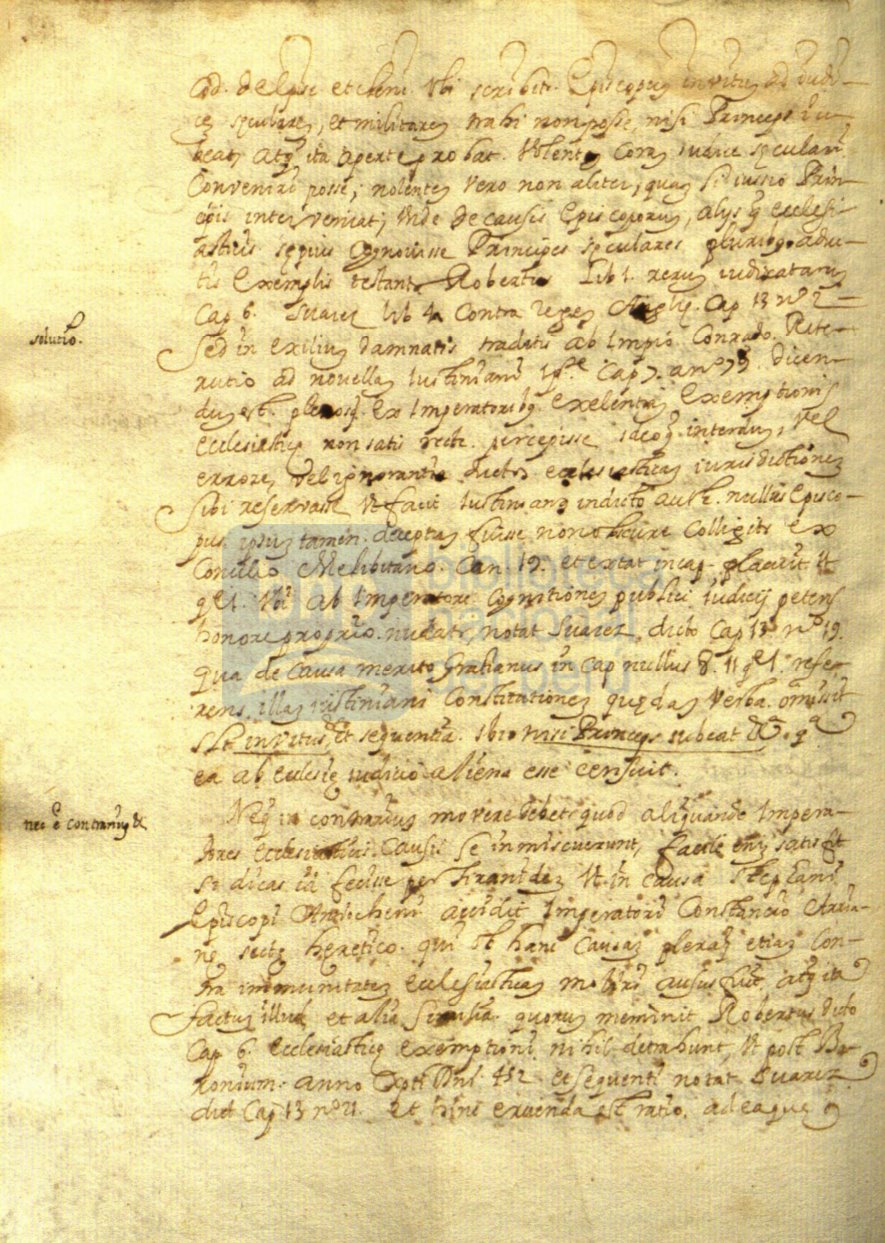 ad. de Epsi et cleri Vbi scribit. Episcopuʒ inVituʒ ad Iudi-
ceʒ sęculareʒ, et militareʒ trahi non posse nisi Princeps iu-
beat, atqʒ ita aperte probat. Volenteʒ Coraʒ iudice sęculari
Conveniri posse; nolenteʒ Vero non aliter, quaʒ si iussio Prin-
cipis interveniat; Vnde de Causis Episcoporuʒ, alysqʒ ecclesi-
asticis sępius Cognouisse Principes sęculares pluribqʒ addu-
tis Exemplis testant Robertus Lib 1. reruʒ iudicataruʒ
Cap 6. Suarez lib 4 Contra Regeʒ Anglię. Cap 13 nº 2
solutio.
Sed in exiliuʒ damnatis traditis ab Impio Conrado. Rite-
rutio ad novellaʒ Iustiniani Cap 7. a nº 75. dicen-
duʒ est. plerosqʒ Ex Imperatoribqʒ Exelentiaʒ Exemptionis
Ecclesiasticę non satis recte percepisse ideoqʒ interduʒ, Vel
errore, Vel ignorantia ductos ecclesiasticaʒ iurisdictioneʒ
Sibi reservasse Vt facit Iustinianʒ in dicto auth. nullus Episco-
pus ipsuʒ tamen deceptuʒ fuisse non obscure Colligitr Ex
Concilio Melibitano. Can. 19. et extat in cap. placuit. 11
q 1. Vbi ab Imperatore Cognitioneʒ publici iudicij petens
honore proprio nudatr, notat Suarez, dicto Cap 13 nº 19.
qua de Causa merito Gratianus in Cap nullus 8. 11 q 1. refe-
rens illaʒ iustiniani Constitutioneʒ quędaʒ Verba omissit
sclt invitus, et sequentia. ibi nisi Princeps iubeat &. qª
ea ab Eclesię iudicio aliena esse censuit.
nec ē contrariuʒ &
Neqʒ in contrariuʒ movere debet quod aliquando Impera-
tores ecclesiasticis Causis se inmiscuerunt, facile eniʒ satis fit
si dicas id fecisse per tiranideʒ Vt in Causa Stephani
Episcopi Antiocheni accidit Imperatori Constancio Arria-
nę sectę herético. qui Vt hanc Causaʒ pleraqʒ etiaʒ Con-
tra immunitateʒ Ecclesiasticaʒ moliri ausus fuit, atqʒ ita
factuʒ illud et alia Similia quoruʒ meminit Robertus dicto
Cap 6. Ecclesiasticę Exemptioni nihil detrahunt, Vt post Ba-
ronium anno Xpti Dni 452. et sequenti notat Suarez
dict Cap 13 nº 21. et hinc eruenda est ratio. ad ea que